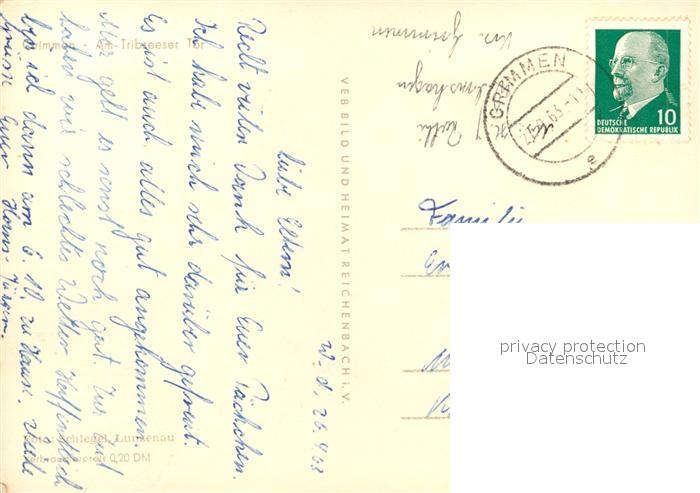 Grimmen - Am Tribseeser Tor
W.-d, 26.9.63
Liebe Eltern!
Recht vielen Dank für Euer Päckchen.
Ich hab mich sehr darüber gefreut.
Es ist auch alles gut angekommen.
Mir geht es sonst noch gut. Zur Zeit
haben wir schlechtes Wetter. Hoffentlich
bin ich dann am 6. 10. zu Hause. Viele
Grüße Euer Hans-Jürgen.
Foto: Schlegel, Lunzenau
Verbraucherpreis 0,20 DM
VEB BILD UND HEIMAT REICHENBACH i. V.
Kr. Grimmen
GRIMMEN
e
10
DEUTSCHE
DEMOKRATISCHE REPUBLIK
Familie
privacy protection
Datenschutz